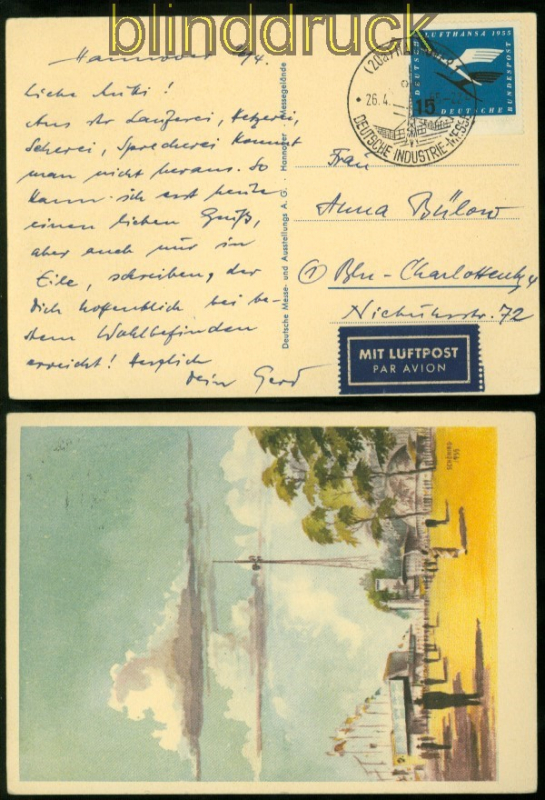 blinddruck
Hannover 26/4.
Liebe Mutti!
Aus der Lauferei, Hetzerei,
Seherei, Sprecherei kommt
man nicht heraus. So
kann ich erst heute
einen lieben Gruß,
aber auch nur in
Eile, schreiben, der
Dich hoffentlich bei be-
stem Wohlbefinden
erreicht! Herzlich
Dein Gerd
Deutsche Messe- und Ausstellungs A.G. Hannover - Messegelände
(20a)
26.4.
DEUTSCHE INDUSTRIE-MESSE
LUFTHANSA 1955
DEUTSCHE
DEUTSCHE BUNDESPOST
15
Frau
Anna Bülow
① Bln-Charlottenbg
Niebuhrstr. 72
MIT LUFTPOST
PAR AVION
1955